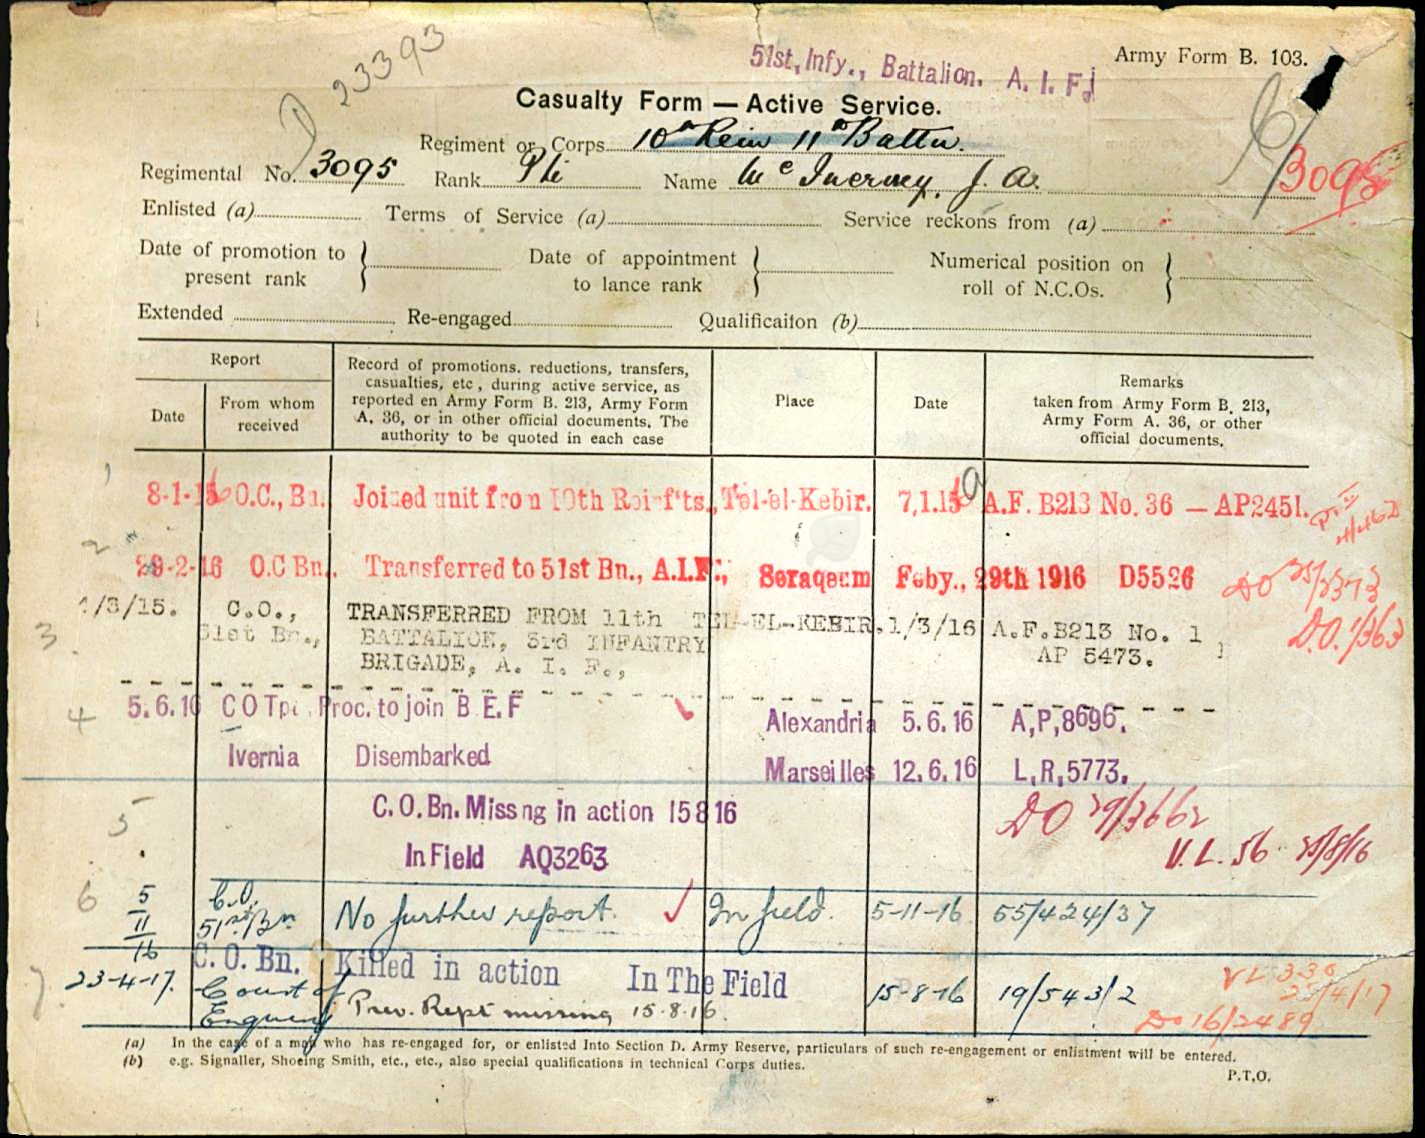 D 23393
51st, Infy., Battalion. A. I. F.
Army Form B. 103.
Casualty Form — Active Service.
Regiment or Corps 10th Rein 11th Battn.
3095
Regimental No. 3095 Rank Pte Name McInerney, J. A.
Enlisted (a) Terms of Service (a) Service reckons from (a)
Date of promotion to present rank
Date of appointment to lance rank
Numerical position on roll of N.C.Os.
Extended Re-engaged Qualificaiton (b)
Report
Date
From whom received
Record of promotions. reductions, transfers,
casualties, etc , during active service, as
reported en Army Form B. 213, Army Form
A. 36, or in other official documents. The
authority to be quoted in each case
Place
Date
Remarks
taken from Army Form B. 213,
Army Form A. 36, or other
official documents.
1
8-1-16 O.C., Bn. Joined unit from 10th Reinf'ts., Tel-el-Kebir. 7.1.16 A.F. B213 No. 36 — AP2451.
2
29-2-16 O.C Bn., Transferred to 51st Bn., A.I.F., Seraqeum Feby., 29th 1916 D5526
DO 35/3373
3
1/3/15. C.O., TRANSFERRED FROM 11th TEL-EL-KEBIR. 1/3/16 A.F.B213 No. 1
51st Bn., BATTALION, 3rd INFANTRY AP 5473.
BRIGADE, A. I. F.,
D.O. 1/363
4
5.6.16 C O Tpt. Proc. to join B E F Alexandria 5.6.16 A,P,8696.
Ivernia Disembarked Marseilles 12.6.16 L,R,5773.
5
C.O. Bn. Miss ng in action 15 8 16
DO 29/3662
In Field AQ3263
V.L. 56 25/8/16
6
5/11/16 C.O. 51st Bn No further report. In field. 5-11-16 55/424/37
7
23-4-17. C. O. Bn. Killed in action In The Field
Court of Enquiry Prev. Rept missing 15.8.16. 15-8-16 19/543/2
VL 336
25/4/17
DO 16/2489
(a) In the case of a man who has re-engaged for, or enlisted Into Section D. Army Reserve, particulars of such re-engagement or enlistment will be entered.
(b) e.g. Signaller, Shoeing Smith, etc., etc., also special qualifications in technical Corps duties.
P.T.O.